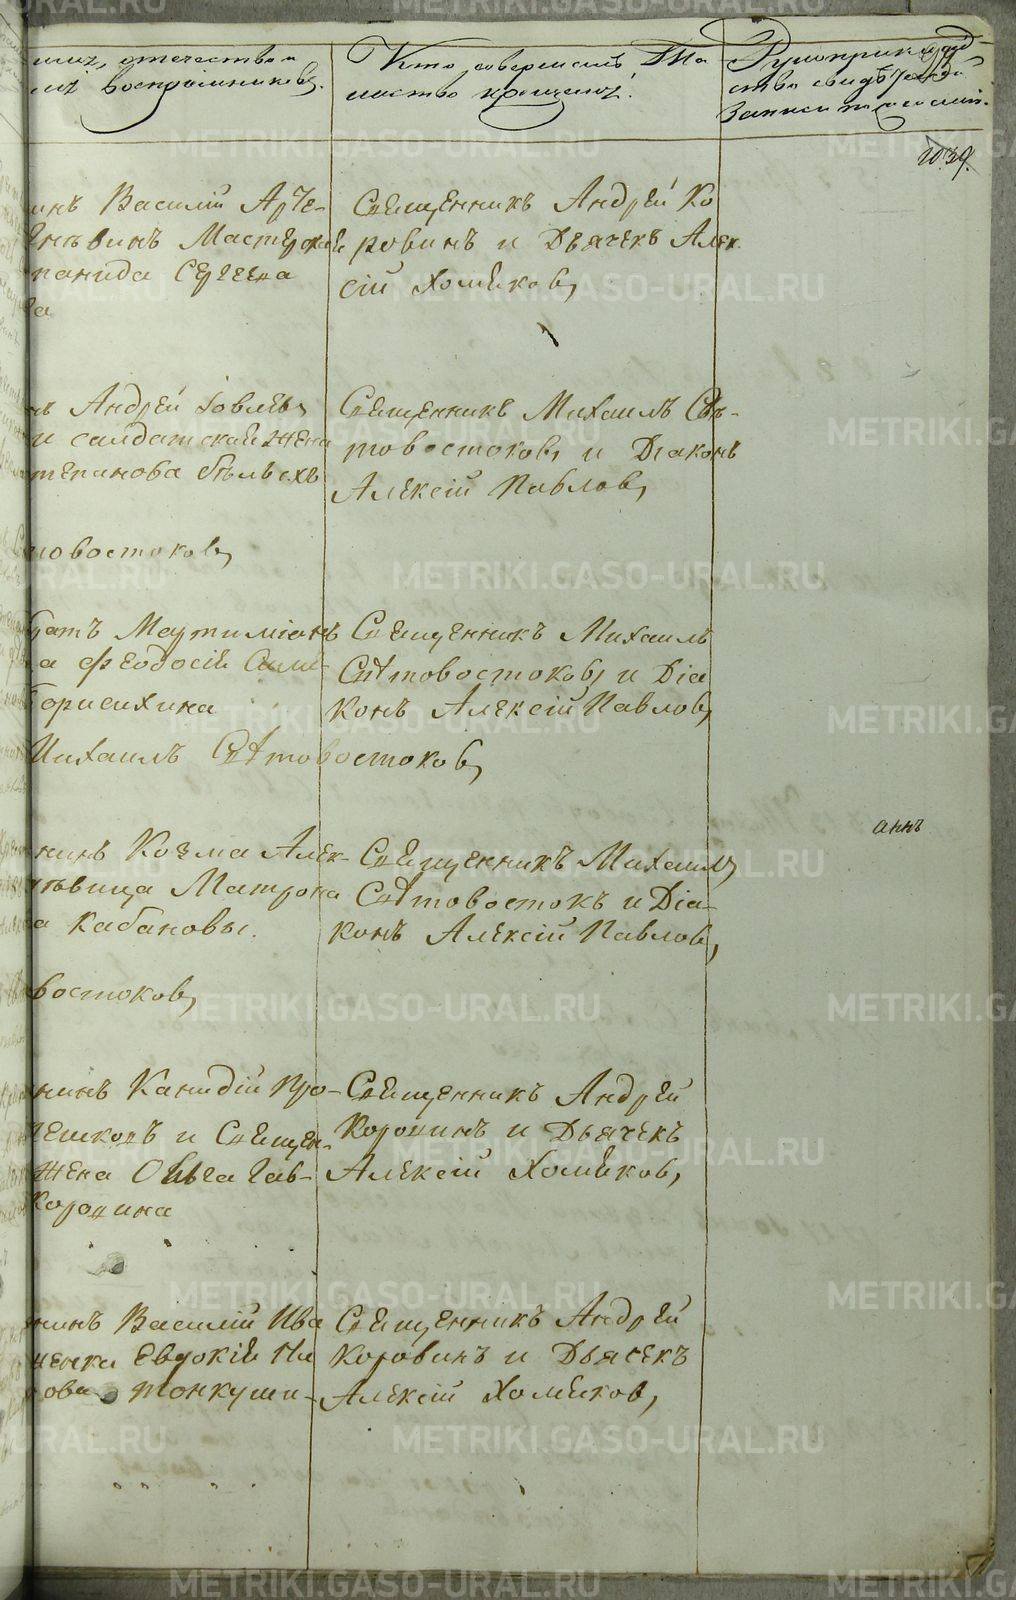 отечество и
воспріемниковъ.
Кто совершалъ Та-
инство крещенія.
Рукоприклад-
ство свидѣтелей
записи по желанію.
1039.
инъ Василій Арте-
Мастерской
панида Сергеева
Священникъ Андрей Ко
ровинъ и Дьячекъ Алек
сій Хомяковъ
нъ Андрей Іовлевъ
и солдатская жена
тепанова Бѣльехъ
новостоковъ
Священникъ Михаилъ Свѣ-
товостоковъ и Діаконъ
Алексій Павловъ
Мартиміанъ
а Феодосій
Борисихина
Михаилъ Свѣтовостоковъ
Священникъ Михаилъ
Свѣтовостоковъ и Діа
конъ Алексій Павловъ
аннъ
нинъ Козма Алек-
евица Матрона
а Кабановы.
востоковъ
Священникъ Михаилъ
Свѣтовостокъ и Діа-
конъ Алексій Павловъ
нинъ Канидій Про-
лешковъ и Священ-
жена Ольга Гав-
Коровина
Священникъ Андрей
Коровинъ и Дьячекъ
Алексій Хомяковъ
нинъ Василій Ива
Евдокій Ни
кова Тонкуши-
Священникъ Андрей
Коровинъ и Дьячекъ
Алексій Хомяковъ
METRIKI.GASO-URAL.RU